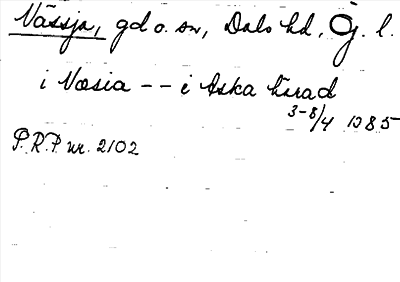 Vässja, gd o. sn, Dals hd, Ög. l.
i Væsia -- i Aska hærad
3-8/4 1385
P.R.P. nr. 2102